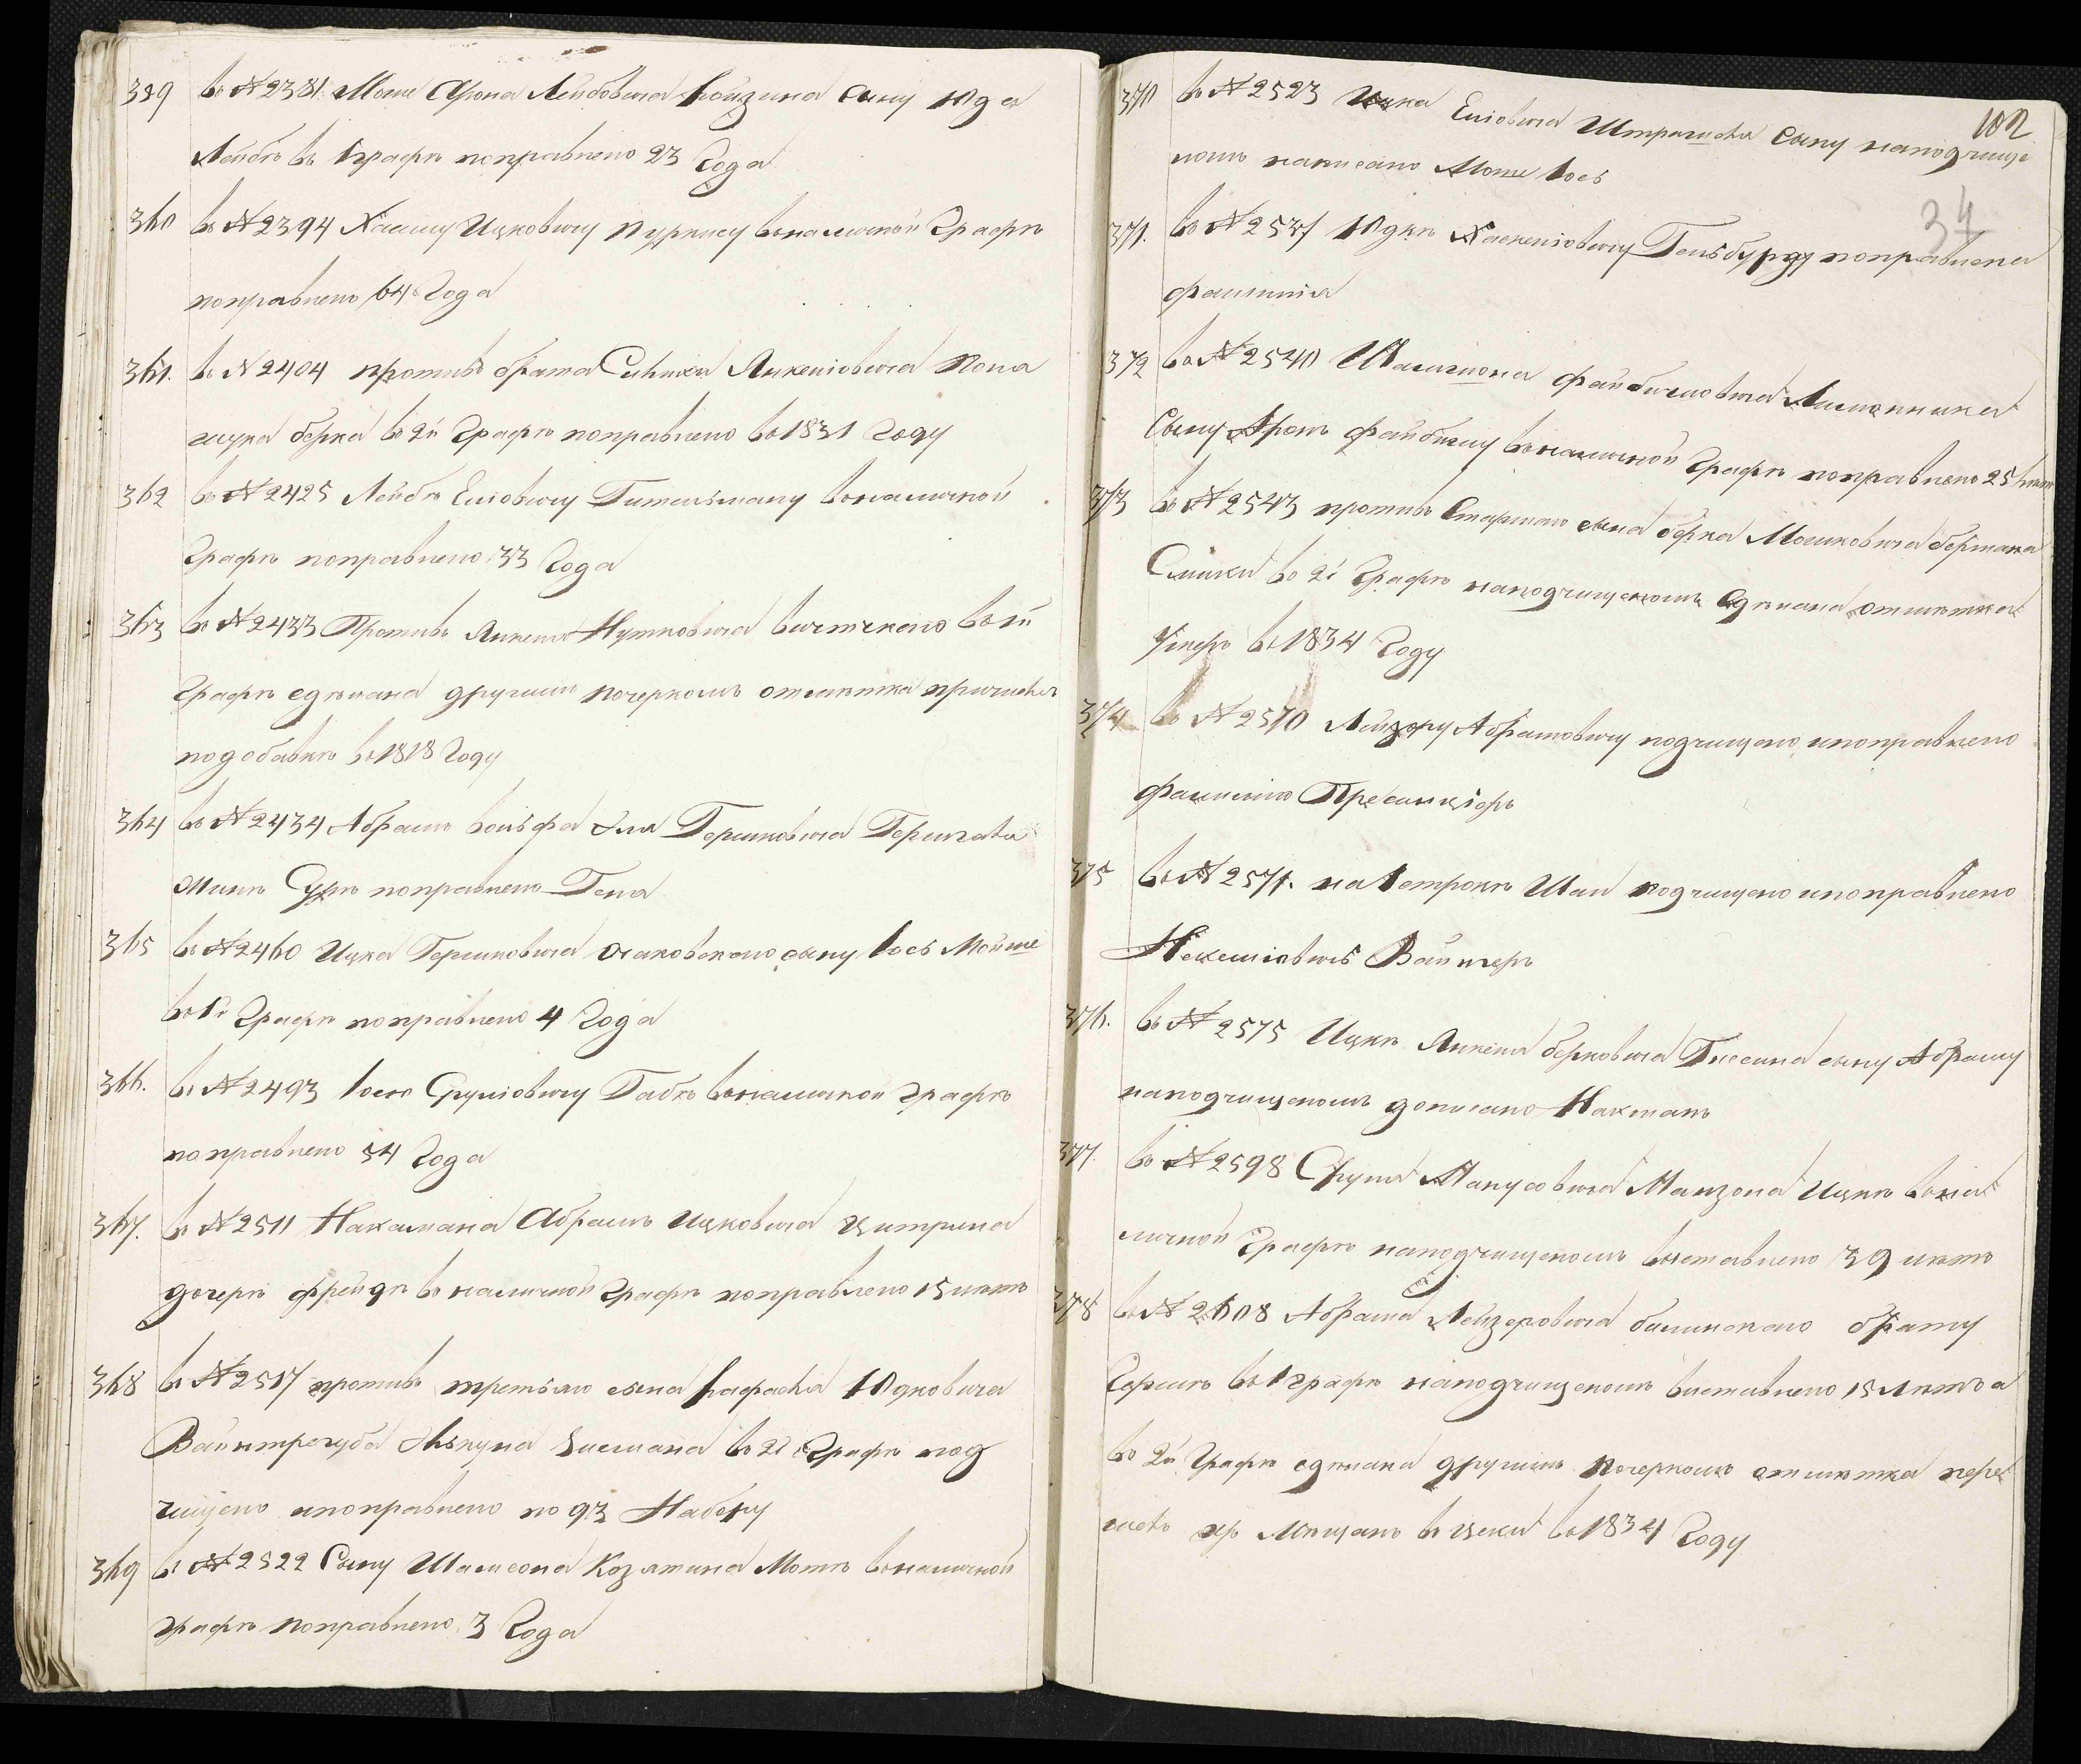 359 въ № 2381 Моше Арона Лейбовича Ройзина сыну Юда
Лейбѣ въ 1 графѣ поправлено 23 Года
360 въ № 2394 Хаиму Ицковичу Пуркису въ наличной Графѣ
поправлено 64 Года
361. въ № 2404 противъ брата Янкеліовича
Берка въ 2й Графѣ поправлено въ 1831 Году
362 въ № 2425 Лейбѣ Еліовичу Гительману въ наличной
Графѣ поправлено 33 Года
363 въ № 2433 Противъ Янкеля Нутковича въ 1й
Графѣ сдѣлана другимъ почеркомъ отмѣтка причисл
подобавкѣ въ 1818 Году
364 въ № 2434 Абрамъ Вольфа Эля Гершковича
Сурѣ поправлено Геня
365 въ № 2460 Ицка Гершковича Очаковскаго сыну Іось Мойше
въ 1й Графѣ поправлено 4 Года
366. въ № 2493 Іосю Сруліовичу Габѣ въ наличной графѣ
поправлено 54 Года
367. въ № 2511 Нахмана Абрамъ Ицковича Цитрина
дочерѣ Фрейдѣ въ наличной Графѣ поправлено 15 лѣтъ
368 въ № 2517 противъ третьяго сына Рафаеля Юдковича
Вайнтрауба Зисмана въ 2й Графѣ под
чищено и поправлено по 93 Набору
369 въ № 2522 Сыну Шамсона Козятина Мотѣ въ наличной
графѣ поправлено 3 Года
102
34
370 въ № 2523 Ицка Еліовича сыну наподчище
номъ написано Моше Іось
371. въ № 2537 Юдкѣ Хаскеліовичу Гензбургу поправлена
фамилія
372 въ № 2540 Шлиомона Файбишовича
сыну Аронъ Файбишу въ наличной Графѣ поправлено 25 лѣтъ
373 въ № 2543 противъ старшаго сына Берка Мошковича Бермана
Симхи въ 2й Графѣ наподчищеномъ сдѣлана отмѣтка
Умеръ въ 1834 Году
374 въ № 2570 Лейзору Абрамовичу подчищено и поправлено
фамилія
375 въ № 2571. на 1 строкѣ Шая подчищено и поправлено
Вайнгеръ
376. въ № 2575 Ицкѣ Янкеля Берковича Гнесина сыну Абраму
наподчищеномъ дописано Нахманъ
377. въ № 2598 Сруля Манусовича Манзона Ицкѣ въ на
личной Графѣ наподчищеномъ выставлено 39 лѣтъ
378 въ № 2608 Абрама Лейзеровича Билинскаго брату
Гершъ въ 1 графѣ наподчищеномъ выставлено 15 Лѣтъ а
въ 2й Графѣ сдѣлана другимъ почеркомъ отмѣтка пере
шелъ въ цехи въ 1834 Году